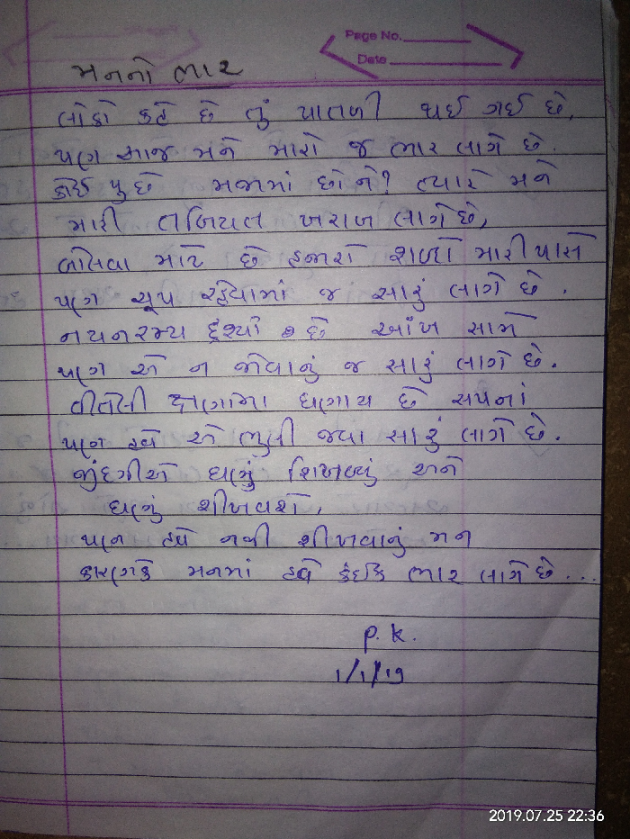 Page No.
Date
મનનો ભાર
લોકો કહે છે તું પાતળી થઈ ગઈ છે,
પણ આજ મને મારો જ ભાર લાગે છે.
કોઈ પુછે મજામાં છો ને? ત્યારે મને
મારી તબિયત ખરાબ લાગે છે,
બોલવા માટે છે હજારો શબ્દો મારી પાસે
પણ ચૂપ રહેવામાં જ સારું લાગે છે.
નયનરમ્ય દ્રશ્યો છે આંખ સામે
પણ એ ન જોવાનું જ સારું લાગે છે.
વીતેલી ક્ષણોમા ઘણાય છે સપનાં
પણ હવે એ ભુલી જવા સારું લાગે છે.
જીંદગીએ ઘણું શિખવ્યું અને
ઘણું શીખવશે,
પણ હવે નથી શીખવાનું મન
કારણકે મનમાં હવે કંઈક ભાર લાગે છે...
P.K.
1/1/19
2019.07.25 22:36